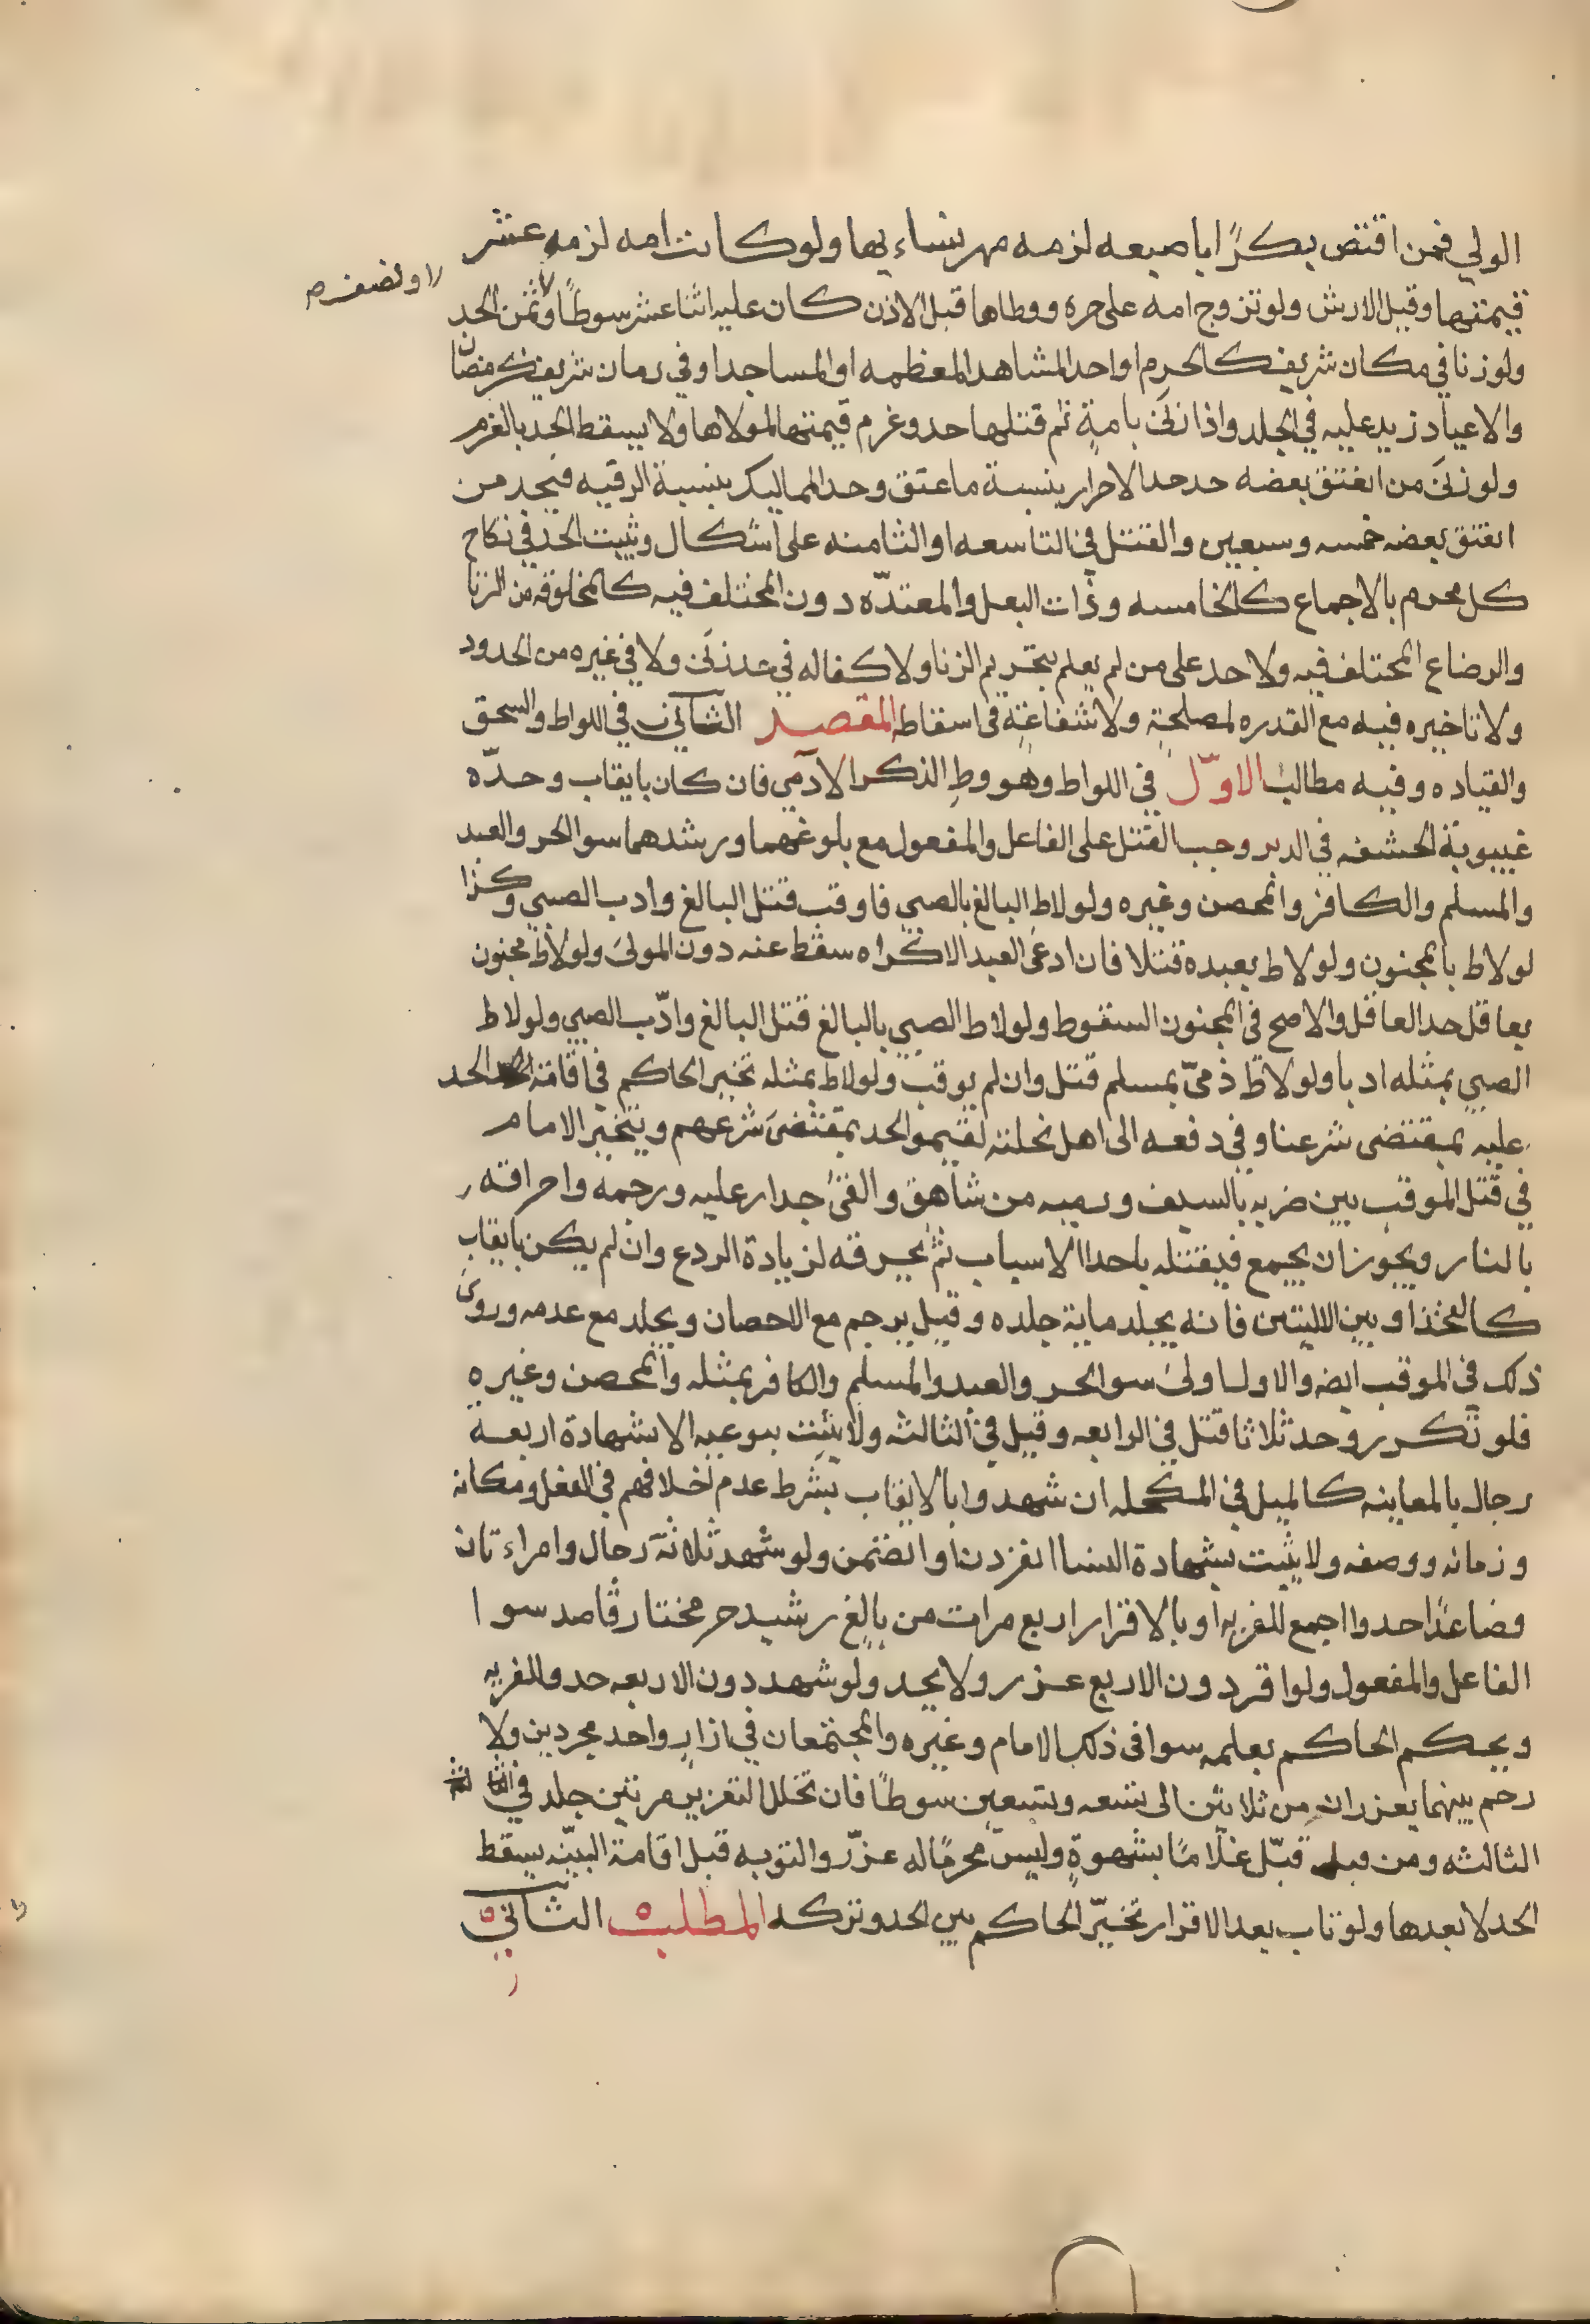 الولي فمن اقتض بكرًا باصبعه لزمه مهر نساءيها ولو كانت امه لزمه عشر
قيمتها وقيل الارش ولو تزوج امه على حره ووطاها قبل الاذن كان عليه اثنا عشر سوطًا وثمن الحد
ونصف
ولو زنا في مكان شريف كالحرم او احد المشاهد المعظمه او المساجد او في زمان شريف كرمضان
والاعياد زيد عليه في الجلد واذا زنى بامةٍ ثم قتلها حد وغرم قيمتها لمولاها ولا يسقط الحد بالغرم
ولو زنى من انعتق بعضه حد حد الاحرار بنسبة ما عتق وحد المماليك بنسبة الرقيه فيحد من
انعتق بعضه خمسه وسبعين والقتل في التاسعه او الثامنه على اشكال ويثبت الحد في نكاح
كل محرم بالاجماع كالخامسه وذات البعل والمعتدّه دون المختلف فيه كالمخلوقه من الزنا
والرضاع المختلف فيه ولا حد على من لم يعلم بتحريم الزنا ولا كفاله في حد زنى ولا في غيره من الحدود
ولا تاخيره فيه مع القدره لمصلحةٍ ولا شفاعةٍ في اسقاطه المقصد الثاني في اللواط والسحق
والقياده وفيه مطالب الاوّل في اللواط وهو وطِ الذكر الآدمي فان كان بايقاب وحدّه
غيبوبة الحشفه في الدبر وجب القتل على الفاعل والمفعول مع بلوغهما ورشدهما سوا الحر والعبد
والمسلم والكافر والمحصن وغيره ولو لاط البالغ بالصبي فاوقب قتل البالغ وادب الصبي وكذا
لو لاط بالمجنون ولو لاط بعبده قتلا فان ادعى العبد الاكراه سقط عنه دون المولى ولو لاط مجنون
بعاقل حد العاقل والاصح في المجنون السقوط ولو لاط الصبي بالبالغ قتل البالغ وادّب الصبي ولو لاط
الصبي بمثله ادبا ولو لاط ذميّ بمسلم قتل وان لم يوقب ولو لاط بمثله تخير الحاكم في اقامة الحد
عليه بمقتضى شرعنا وفي دفعه الى اهل نحلته لقيموا الحد بمقتضى شرعهم ويتخير الامام
في قتل الموقب بين ضربه بالسيف ورميه من شاهق والقىٰ جدار عليه ورجمه واحراقه
بالنار ويجوز ان يجمع فيقتله باحد الاسباب ثم يحرقه لزيادة الردع وان لم يكن بايقاب
كالفخذ او بين الاليتين فانه يجلد ماية جلده وقيل يرجم مع الاحصان ويجلد مع عدمه وروى
ذلك في الموقب ايضه والاول اولى سوا الحر والعبد والمسلم والكافر بمثله والمحصن وغيره
فلو تكرر وحد ثلاثا قتل في الرابعه وقيل في الثالثه ولا يثبت بنوعيه الا بشهادة اربعة
رجال بالمعاينه كالميل في المكحله ان شهدوا بالايقاب بشرط عدم اخلافهم في الفعل ومكانه
وزمانه ووصفه ولا يثبت بشهادة النسا انفردن او انضممن ولو شهد ثلاثة رجال وامراءتان
فصاعدًا حدوا اجمع للفريه او بالاقرار اربع مرات من بالغ رشيد حر مختار قاصد سوا
الفاعل والمفعول ولو اقر دون الاربع عزر ولا يحد ولو شهد دون الاربعه حدو للفريه
ويحكم الحاكم بعلمه سوا في ذلك الامام وغيره والمجتمعان في ازارٍ واحد مجردين ولا
رحم بينهما يعزران من ثلاثين الى تسعه وتسعين سوطًا فان تخلل التعزير مرتين جلد في
الثالثه ومن قبّل غلامًا بشهوةٍ وليس محرمًا له عزّر والتوبه قبل اقامة البيّنه يسقط
الحد لا بعدها ولو تاب بعد الاقرار تخيّر الحاكم بين الحد وتركه المطلب الثاني